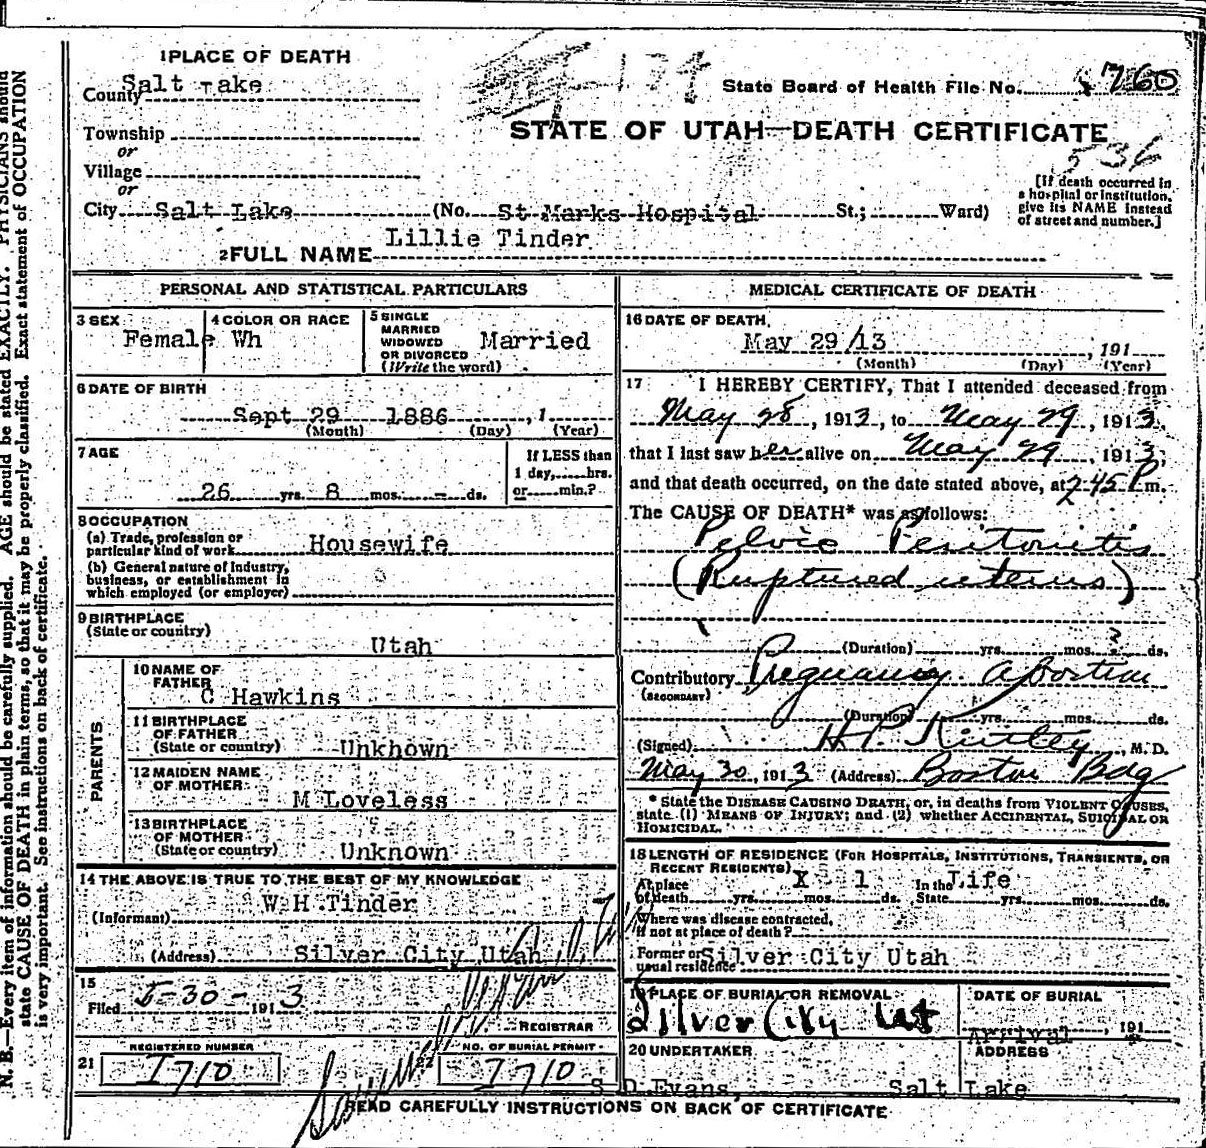 1 PLACE OF DEATH
County Salt Lake
Township
or
Village
or
City Salt Lake (No. St Marks Hospital St.; Ward)
174
State Board of Health File No. 760
STATE OF UTAH—DEATH CERTIFICATE
536
[If death occurred in
a hospital or institution,
give its NAME instead
of street and number.]
2 FULL NAME Lillie Tinder
PERSONAL AND STATISTICAL PARTICULARS
3 SEX Female
4 COLOR OR RACE Wh
5 SINGLE
MARRIED
WIDOWED
OR DIVORCED
(Write the word)
Married
6 DATE OF BIRTH
Sept 29 1886, 1
(Month) (Day) (Year)
7 AGE
26 yrs. 8 mos. - ds.
If LESS than
1 day, hrs.
or min.?
8 OCCUPATION
(a) Trade, profession or
particular kind of work Housewife
(b) General nature of industry,
business, or establishment in
which employed (or employer)
9 BIRTHPLACE
(State or country) Utah
PARENTS
10 NAME OF
FATHER C Hawkins
11 BIRTHPLACE
OF FATHER
(State or country) Unkhown
12 MAIDEN NAME
OF MOTHER M Loveless
13 BIRTHPLACE
OF MOTHER
(State or country) Unknown
14 THE ABOVE IS TRUE TO THE BEST OF MY KNOWLEDGE
(Informant) W H Tinder
(Address) Silver City Utah
15
Filed 5-30- 1913
REGISTRAR
21 REGISTERED NUMBER
I710
22 NO. OF BURIAL PERMIT
I710
MEDICAL CERTIFICATE OF DEATH
16 DATE OF DEATH
May 29/13, 191
(Month) (Day) (Year)
17 I HEREBY CERTIFY, That I attended deceased from
May 28, 1913, to May 29, 1913,
that I last saw her alive on May 29, 1913,
and that death occurred, on the date stated above, at 2:45 P m.
The CAUSE OF DEATH* was as follows:
Pelvic Peritonitis
(Ruptured uterus)
(Duration) yrs. mos. ? ds.
Contributory Pregnancy abortion
(SECONDARY)
(Duration) yrs. mos. ds.
(Signed) H.P. , M. D.
May 30, 1913 (Address) Boston Bdg
* State the DISEASE CAUSING DEATH, or, in deaths from VIOLENT CAUSES,
state (1) MEANS OF INJURY; and (2) whether ACCIDENTAL, SUICIDAL OR
HOMICIDAL.
18 LENGTH OF RESIDENCE (FOR HOSPITALS, INSTITUTIONS, TRANSIENTS, OR
RECENT RESIDENTS)
At place
of death yrs. X mos. 1 ds. In the
State Life yrs. mos. ds.
Where was disease contracted,
if not at place of death?
Former or
usual residence Silver City Utah
19 PLACE OF BURIAL OR REMOVAL
Silver City Ut
DATE OF BURIAL
Arrival, 191
20 UNDERTAKER
S D Evans,
ADDRESS
Salt Lake
READ CAREFULLY INSTRUCTIONS ON BACK OF CERTIFICATE
N. B.—Every item of information should be carefully supplied. AGE should be stated EXACTLY. PHYSICIANS should
state CAUSE OF DEATH in plain terms, so that it may be properly classified. Exact statement of OCCUPATION
is very important. See instructions on back of certificate.